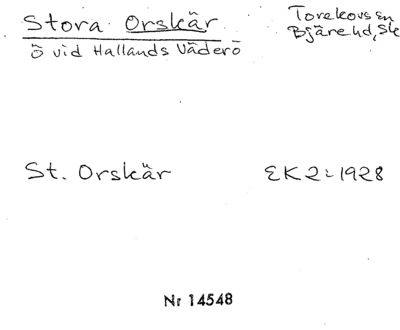 Stora Orskär
Torekovs sn
Bjäre hd, Sk
ö vid Hallands Väderö
St. Orskär
EK2: 1928
Nr 14548